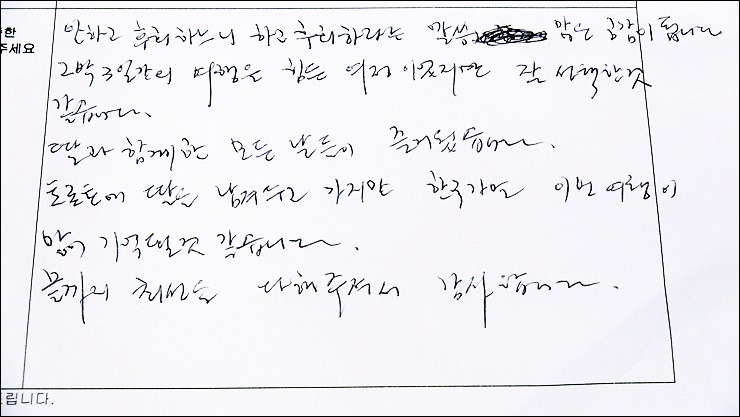 한
주세요
안하고 후회하느니 하고 후회하라는 말씀 많은 공감이 됩니다
2박 3일간의 여행은 힘든 여정이었지만 잘 선택한것
같습니다.
딸과 함께한 모든 날들이 즐거웠습니다.
토론토에 딸을 남겨두고 가지만 한국가면 이번 여행이
많이 기억될것 같습니다.
끝까지 최선을 다해주셔서 감사합니다.
드립니다.